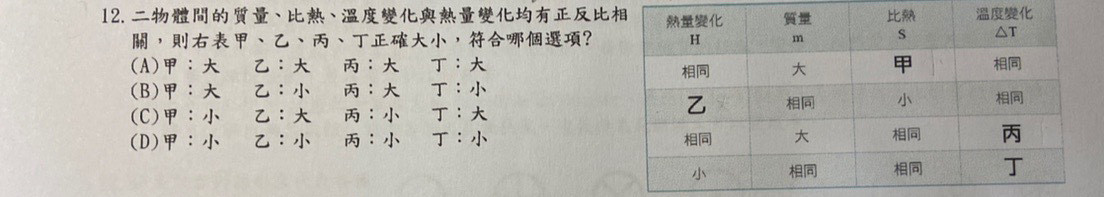 12. 二物體間的質量、比熱、溫度變化與熱量變化均有正反比相
關，則右表甲、乙、丙、丁正確大小，符合哪個選項？
(A)甲：大 乙：大 丙：大 丁：大
(B)甲：大 乙：小 丙：大 丁：小
(C)甲：小 乙：大 丙：小 丁：大
(D)甲：小 乙：小 丙：小 丁：小
熱量變化 質量 比熱 溫度變化
H m S △T
相同 大 甲 相同
乙 相同 小 相同
相同 大 相同 丙
小 相同 相同 丁